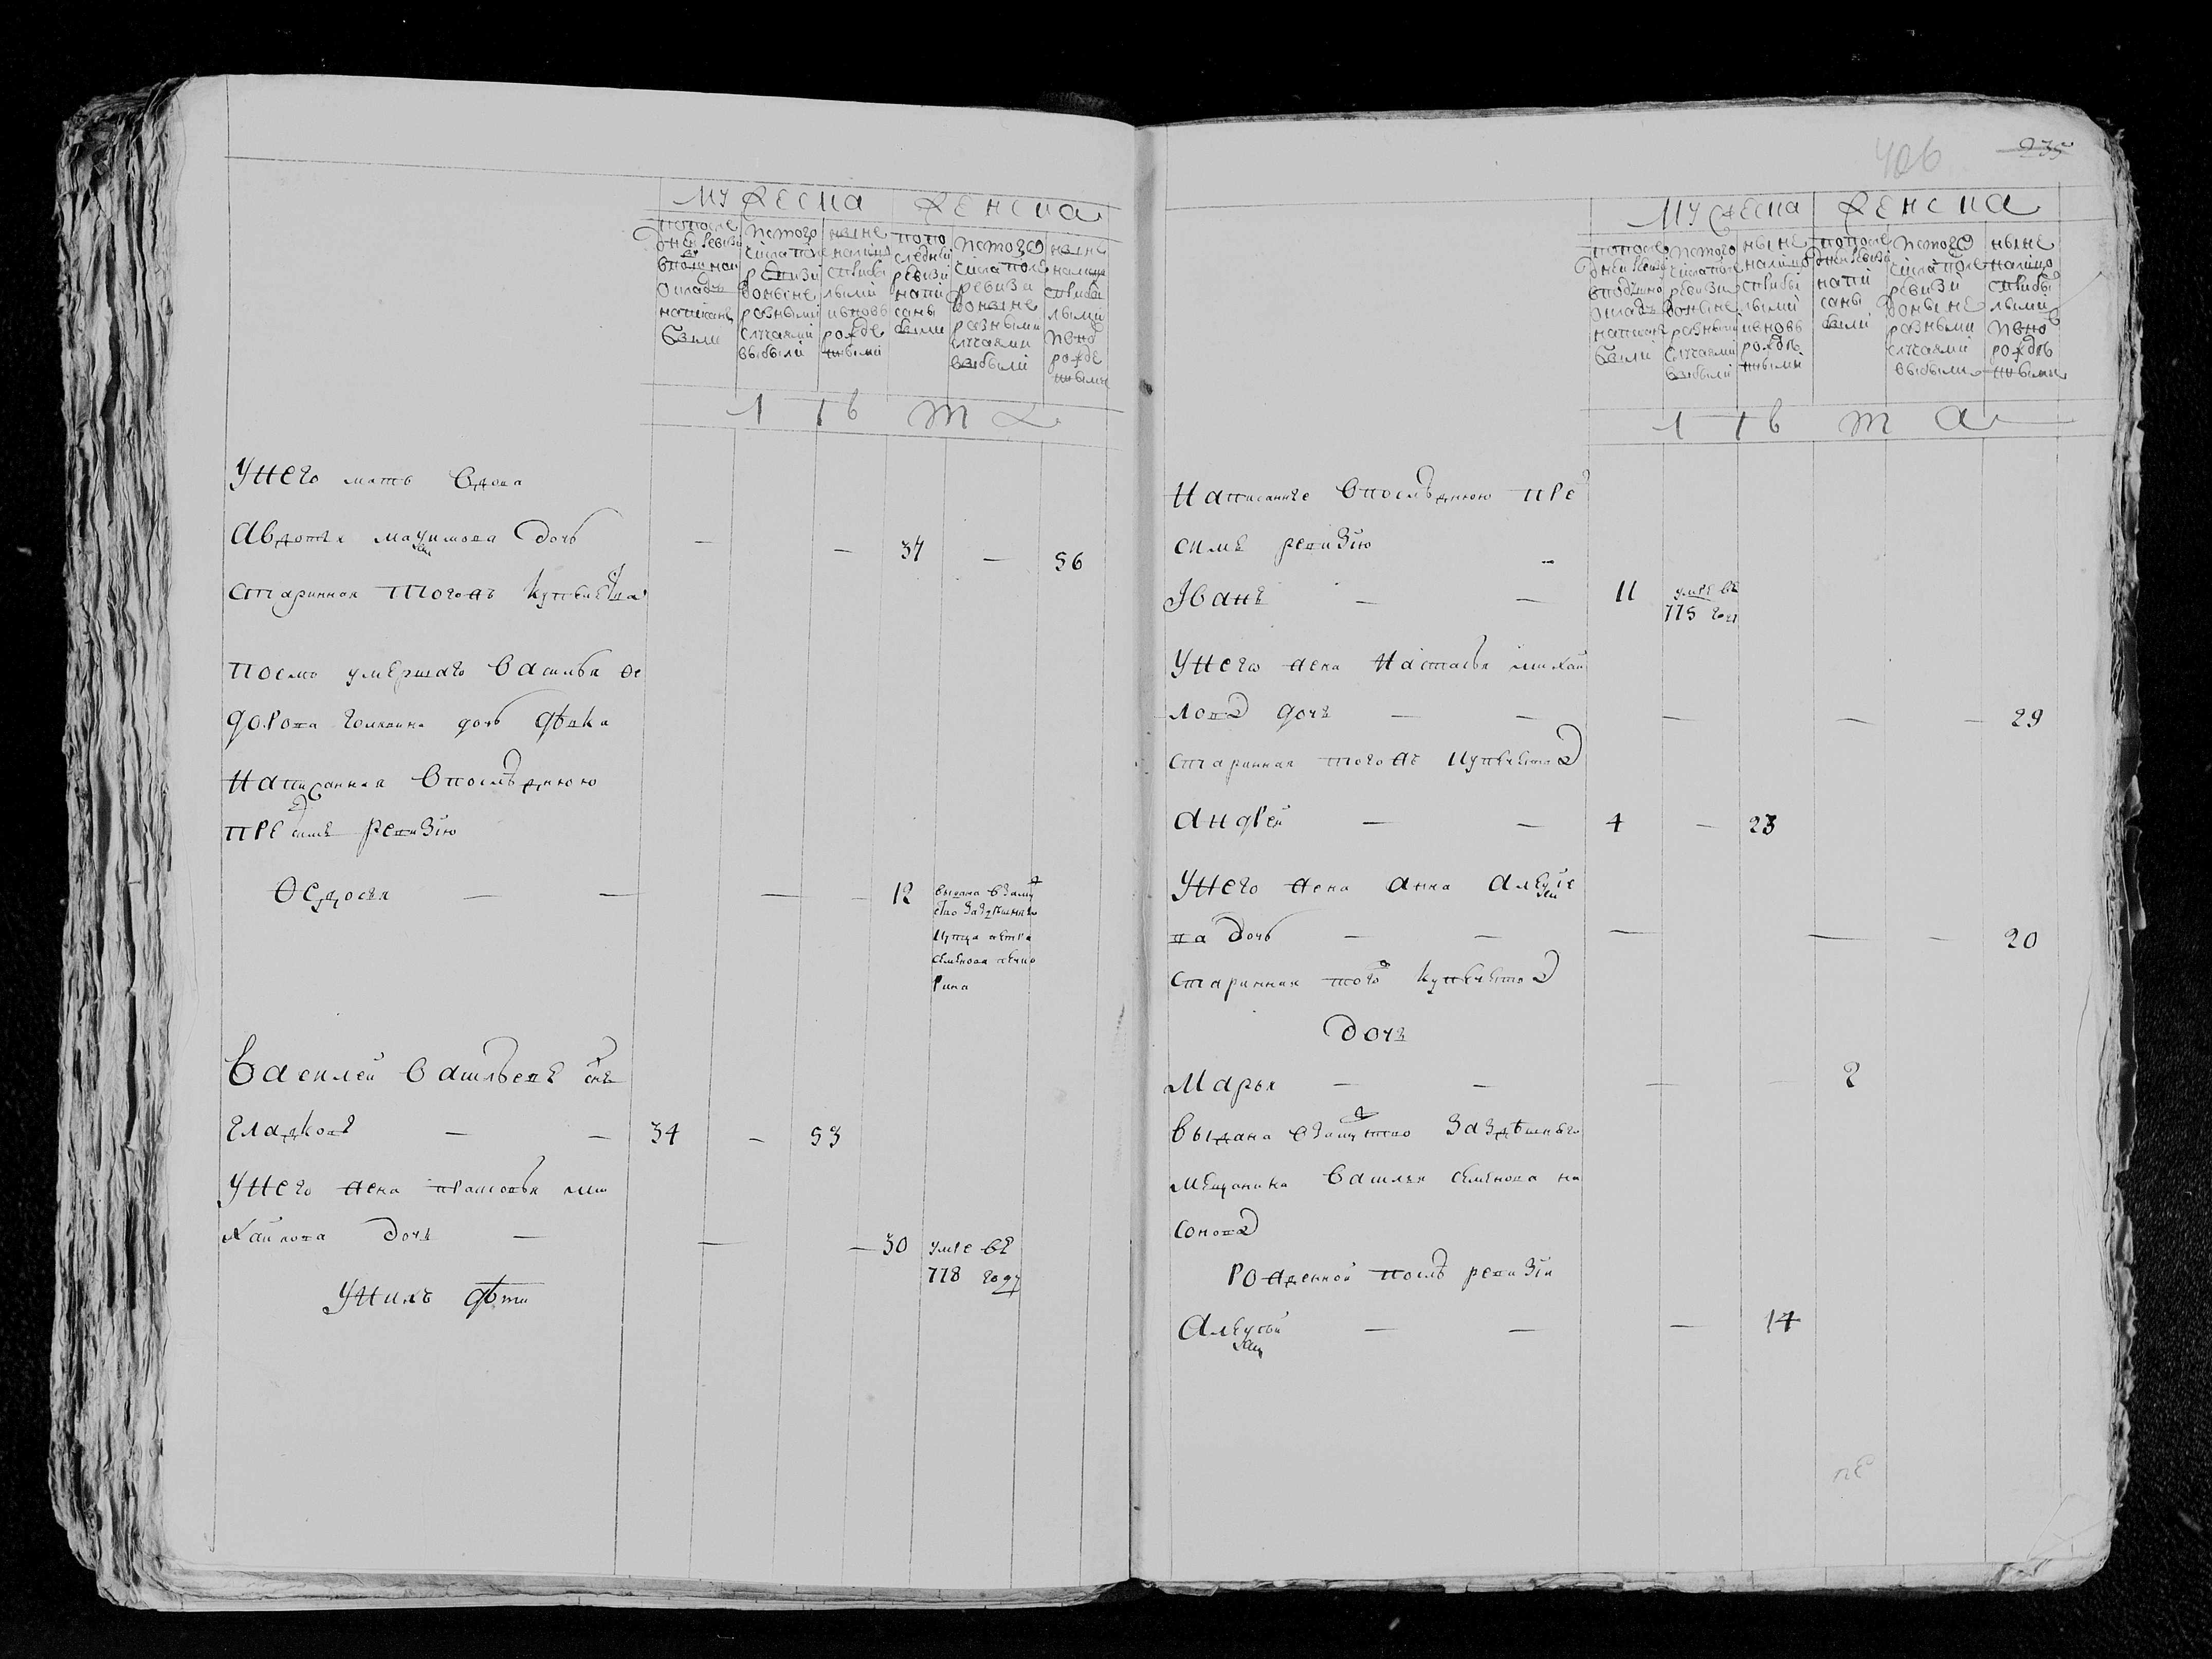 мужеска женска
попоследней ревизи вподушном окладъ написаны были
истого числа после ревизи доныне разными случаями выбыли
ныне налицо сприбылыми ивновь рожденными
попоследней ревизи написаны были
истого числа после ревизи доныне разными случаями выбыли
ныне налицо сприбылыми ивновь рожденными
лъта
Унего мать вдова
Авдотья макcимова дочь — — 37 — 56
старинная тогожъ купечества
После умершаго Василья Фе
дорова дочь дѣвка
написанная впослѣднюю
предъ симъ ревизію
Федосья — — — — 12 выдана взамуж
ство заздѣшняго
купца петра
семенова
рина
Василей Васильевъ снъ
гладковъ — — 34 — 53
Унего жена прасковья ми
хайлова дочь — — — 30 умре въ
778 году
Унихъ дѣти
406 235
мужеска женска
попоследней ревизи вподушно окладъ написаны были
истого числа после ревизи доныне разными случаями выбыли
ныне налицо сприбылыми ивновь рожденными
попоследней ревизи написаны были
истого числа после ревизи доныне разными случаями выбыли
ныне налицо сприбылыми ивновь рожденными
лъта
написанные впослѣднюю пред
симъ ревизію
Іванъ — — 11 умре въ
775 году
Унего жена Настасья михай
лова дочъ — — — — — 29
старинная тогожъ купечества
андрей — — 4 — 23
Унего жена анна алексѣе
ва дочь — — — — — 20
старинная того ж купечества
дочъ
Марья — — — — 2
выдана взамужство заздѣшняго
мещанина василья семенова на
сонова
рожденной послѣ ревизіи
Алексѣй — — — 14